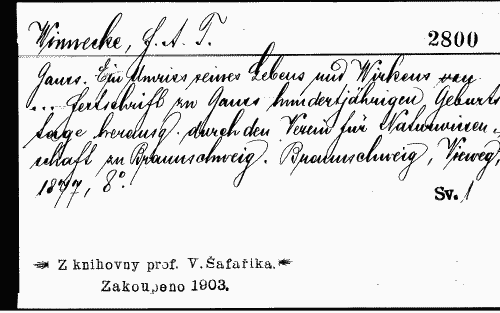 Winnecke, F. A. T. 2800
Gauss. Ein Umriss seines Lebens und Wirkens von
... Festschrift zu Gauss hundertjährigen Geburts
tage herausg. durch den Verein für Naturwissen-
schaft zu Braunschweig. Braunschweig, Vieweg,
1877, 8°.
Sv. 1
Z knihovny prof. V. Šafaříka.
Zakoupeno 1903.